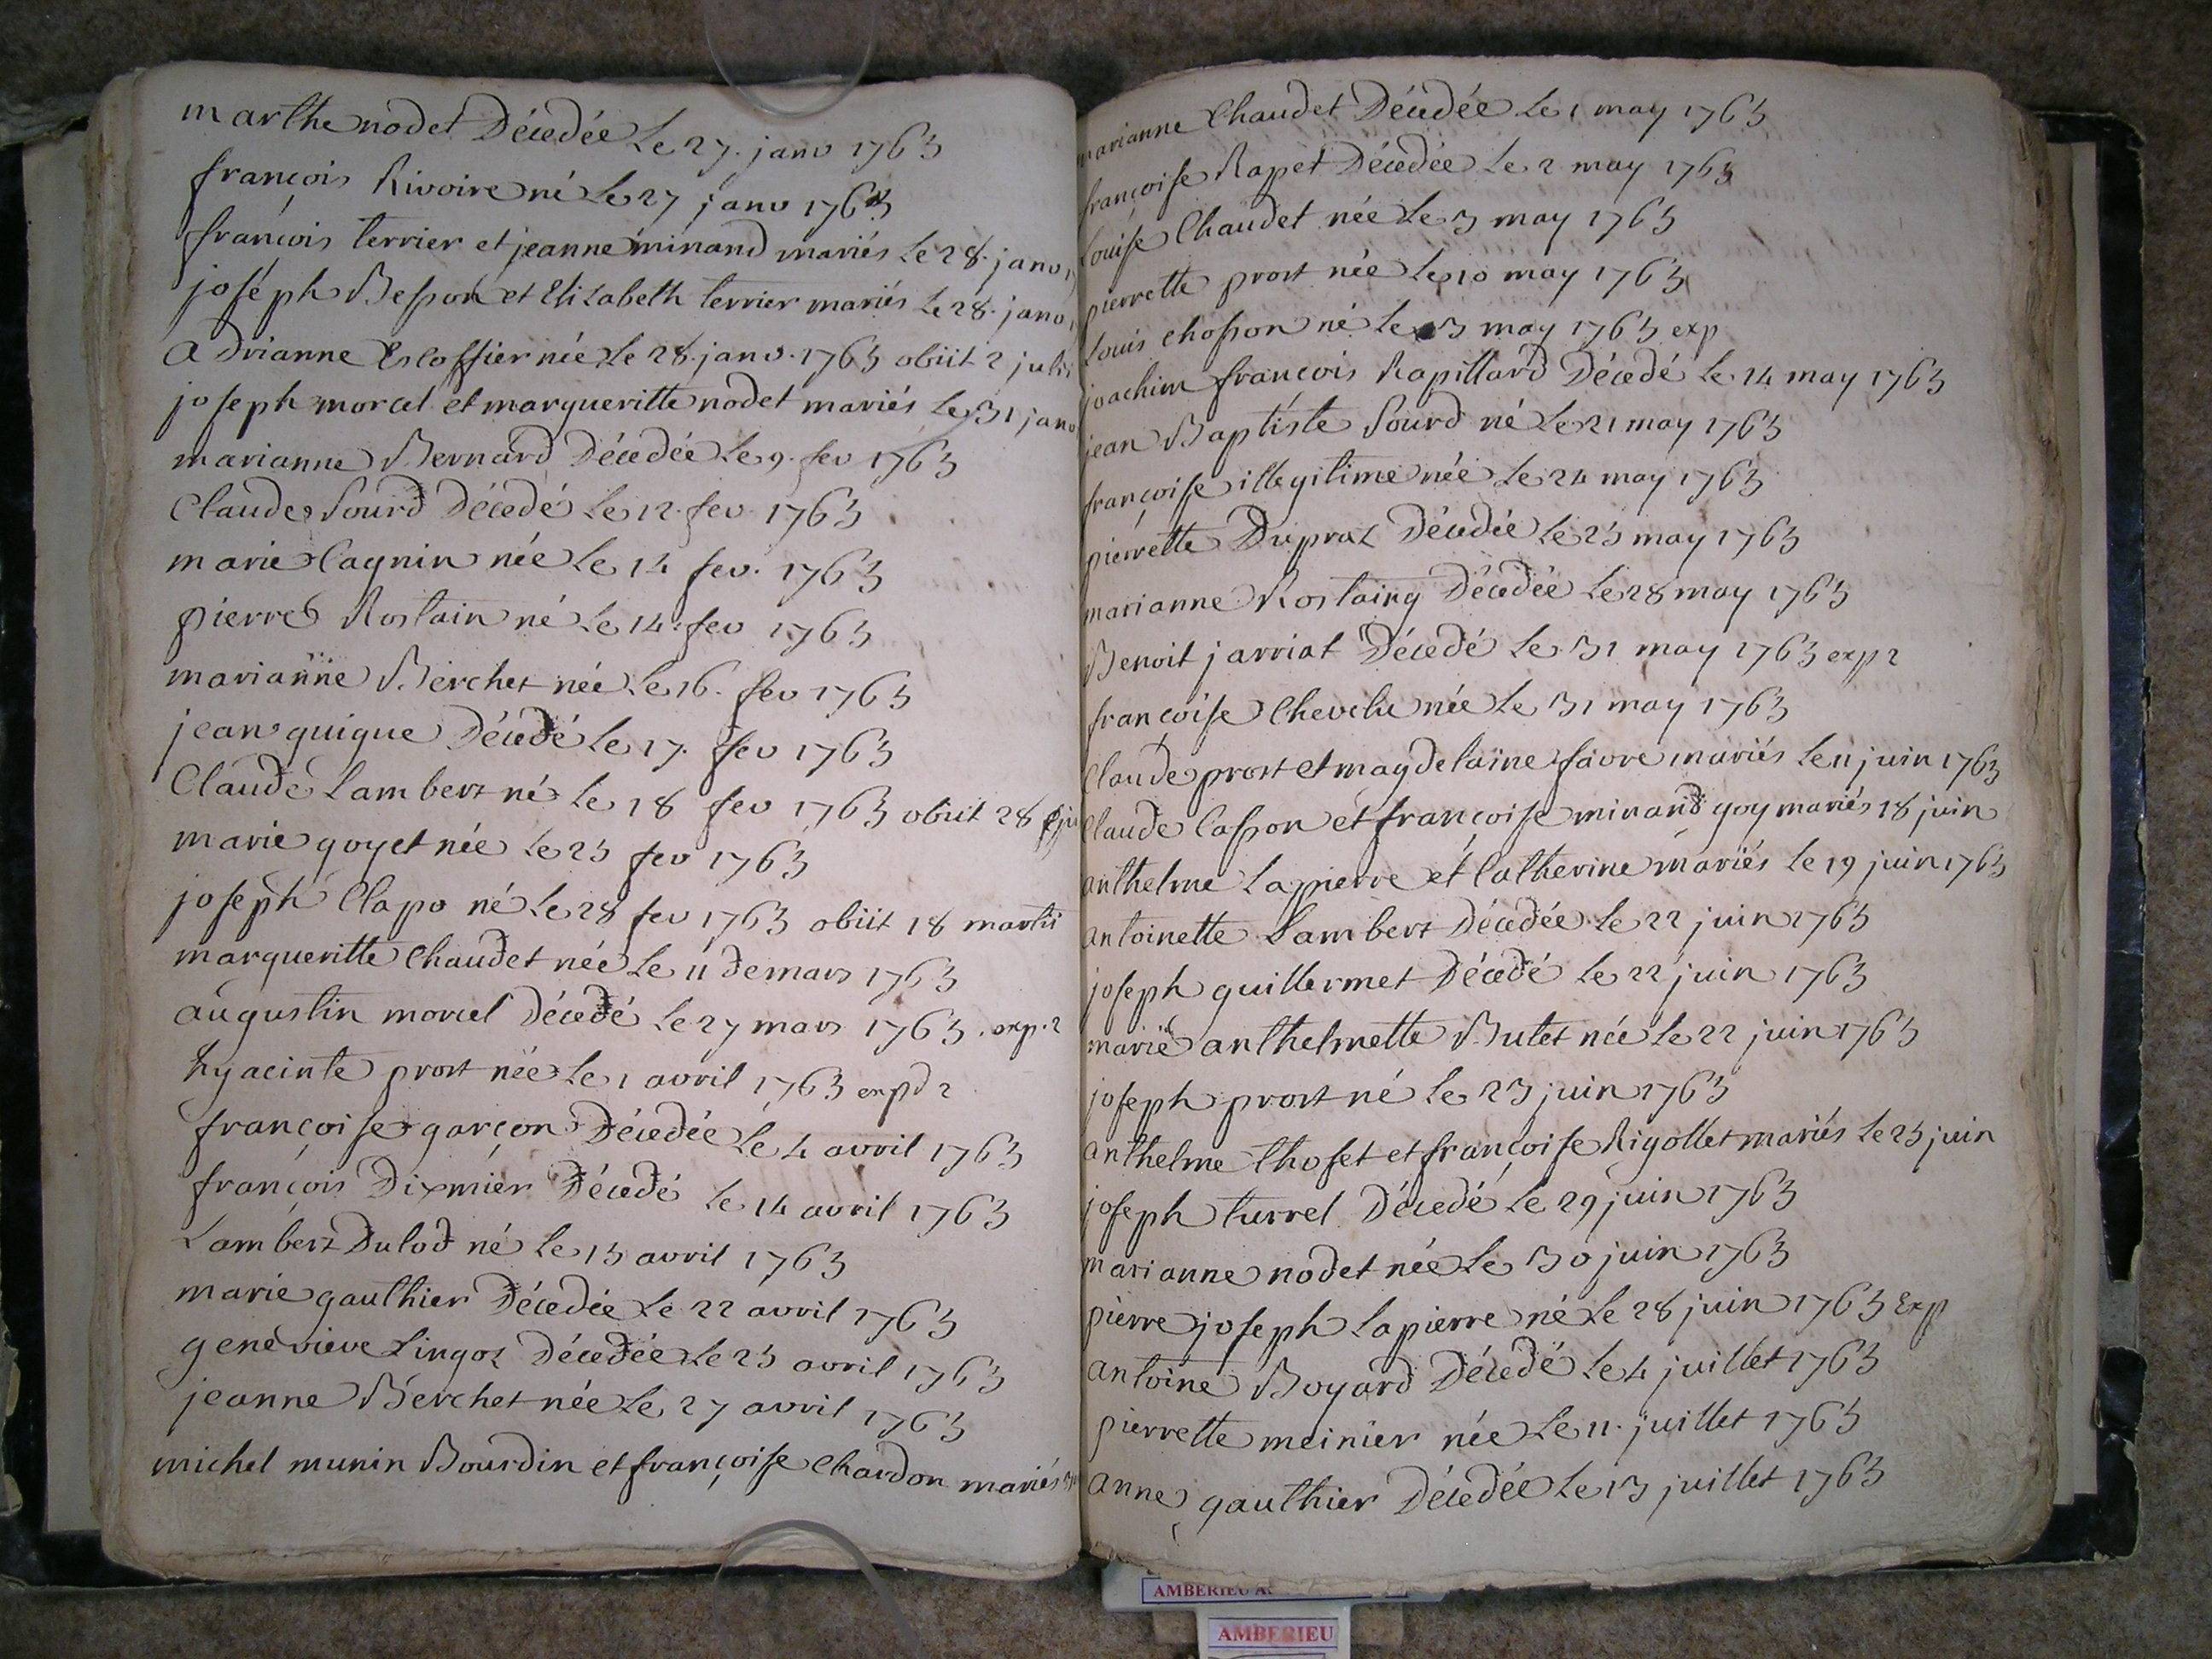 marthe nodet Décedée Le 27. janv 1763
françois Rivoire né Le 27 janv 1763
françois terrier et jeanne minand mariés Le 28. janv.
joseph Besson et Elizabeth terrier mariés Le 28. janv.
Adrianne Escoffier née Le 28. janv. 1763 obiit 2 julii
joseph morcel et margueritte nodet mariés Le 31 janv
marianne Bernard Décedée Le 9. fev 1763
Claude Sourd Décedé Le 12. fev 1763
marie Cagnin née Le 14 fev. 1763
pierre Rostain né Le 14. fev 1763
marianne Berchet née Le 16. fev 1763
jean guigue Décedé Le 17. fev 1763
Claude Lambert né Le 18 fev 1763 obiit 28
marie goyet née Le 25 fev 1763
joseph Clapo né Le 28 fev 1763 obiit 18 martii
margueritte Chaudet née Le 11 de mars 1763
augustin morcel Décedé Le 27 mars 1763. exp. 2
hyacinte prost née Le 1 avril 1763 expd 2
françoise garçon Décedée Le 4 avril 1763
françois Dixmier Décedé Le 14 avril 1763
Lambert Dulod né Le 15 avril 1763
marie gauthier Décedée Le 22 avril 1763
genevieve Lingot Décedée Le 25 avril 1763
jeanne Berchet née Le 27 avril 1763
michel munin Bourdin et françoise Chardon mariés
marianne Chaudet Décedée Le 1 may 1763
françoise Rapet Décedée Le 2 may 1763
Louise Chaudet née Le 3 may 1763
pierrette prost née Le 10 may 1763
Louis chosson né Le 13 may 1763 exp
joachim françois Rapillard Décedé Le 14 may 1763
jean Baptiste Sourd né Le 21 may 1763
françoise illegitime née Le 24 may 1763
pierrette Dupraz Décedée Le 25 may 1763
marianne Rostaing Décedée Le 28 may 1763
Benoit jarriat Décedé Le 31 may 1763 exp 2
françoise Chevelu née Le 31 may 1763
Claude prost et magdelaine favre mariés Le 11 juin 1763
Claude Casson et françoise minand goy mariés 18 juin
anthelme Lapierre et Catherine mariés Le 19 juin 1763
antoinette Lambert Décedée Le 22 juin 1763
joseph guillermet Décedé Le 22 juin 1763
marie anthelmette Butet née Le 22 juin 1763
joseph prost né Le 23 juin 1763
anthelme thoset et françoise Rigollet mariés Le 25 juin
joseph turrel Décedé Le 29 juin 1763
marianne nodet née Le 30 juin 1763
pierre joseph Lapierre né Le 28 juin 1763 Exp
antoine Boyard Décedé Le 4 juillet 1763
pierrette meinier née Le 11. juillet 1763
anne gauthier Décedée Le 13 juillet 1763
AMBERIEU
AMBERIEU